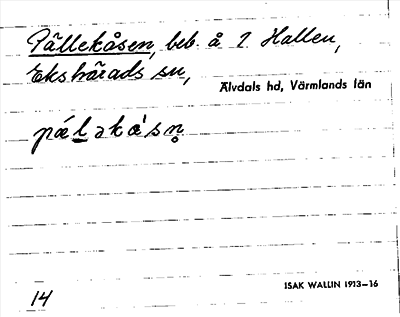 Pällekåsen, beb. å 1. Hallen,
Ekshärads sn,
Älvdals hd, Värmlands län
pǽlǝkåˋsn̥
ISAK WALLIN 1913–16
14